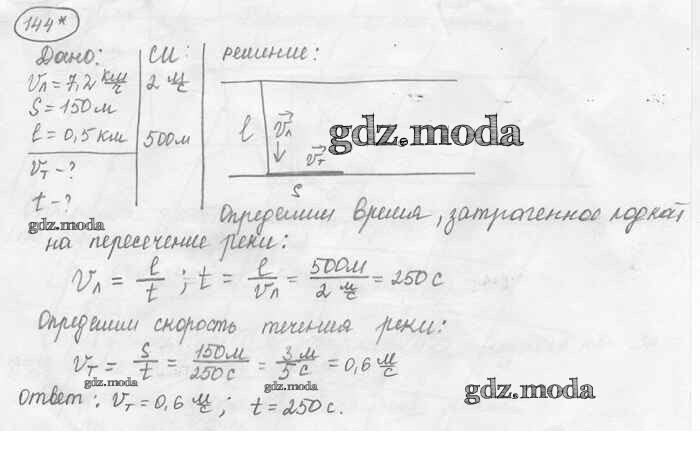 144*
Дано: СИ: Решение:
vл = 7,2 км/ч 2 м/с
S = 150 м
ℓ = 0,5 км 500 м
vт - ?
t - ?
ℓ v⃗л v⃗т S
gdz.moda
gdz.moda
Определим время, затраченное лодкой
на пересечение реки:
vл = ℓ/t ; t = ℓ/vл = 500 м / 2 м/с = 250 с
Определим скорость течения реки:
vт = S/t = 150 м / 250 с = 3 м / 5 с = 0,6 м/с
gdz.moda gdz.moda gdz.moda
Ответ: vт = 0,6 м/с ; t = 250 с.